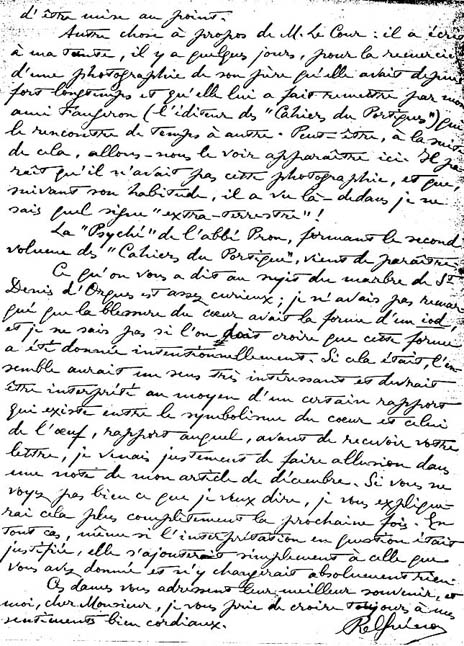 d'être mise au point.
Autre chose à propos de M. Le Cour : il a écrit
à ma tante, il y a quelques jours, pour la remercier
d'une photographie de son père qu'elle avait depuis
fort longtemps et qu'elle lui a fait remettre par mon
ami Faugeron (l'éditeur des "Cahiers du Portique") qui
le rencontre de temps à autre. Peut-être, à la suite
de cela, allons-nous le voir apparaître ici. Il pa-
raît qu'il n'avait pas cette photographie, et que,
suivant son habitude, il a vu là-dedans je ne
sais quel signe "extra-terrestre" !
La "Psyché" de l'abbé Pron, formant le second
volume des "Cahiers du Portique", vient de paraître.
Ce qu'on vous a dit au sujet du marbre de St
Denis d'Orques est assez curieux ; je n'avais pas remar-
qué que la blessure du cœur avait la forme d'un iod,
et je ne sais pas si l'on doit croire que cette forme
a été donnée intentionnellement. Si cela était, l'en-
semble aurait un sens très intéressant et devrait
être interprété au moyen d'un certain rapport
qui existe entre le symbolisme du cœur et celui
de l'œuf, rapport auquel, avant de recevoir votre
lettre, je venais justement de faire allusion dans
une note de mon article de décembre. Si vous ne
voyez pas bien ce que je veux dire, je vous explique-
rai cela plus complètement la prochaine fois. En
tout cas, même si l'interprétation en question était
justifiée, elle s'ajouterait simplement à celle que
vous avez donnée et n'y changerait absolument rien.
Ces dames vous adressent leur meilleur souvenir, et
moi, cher Monsieur, je vous prie de croire toujours à mes
sentiments bien cordiaux.